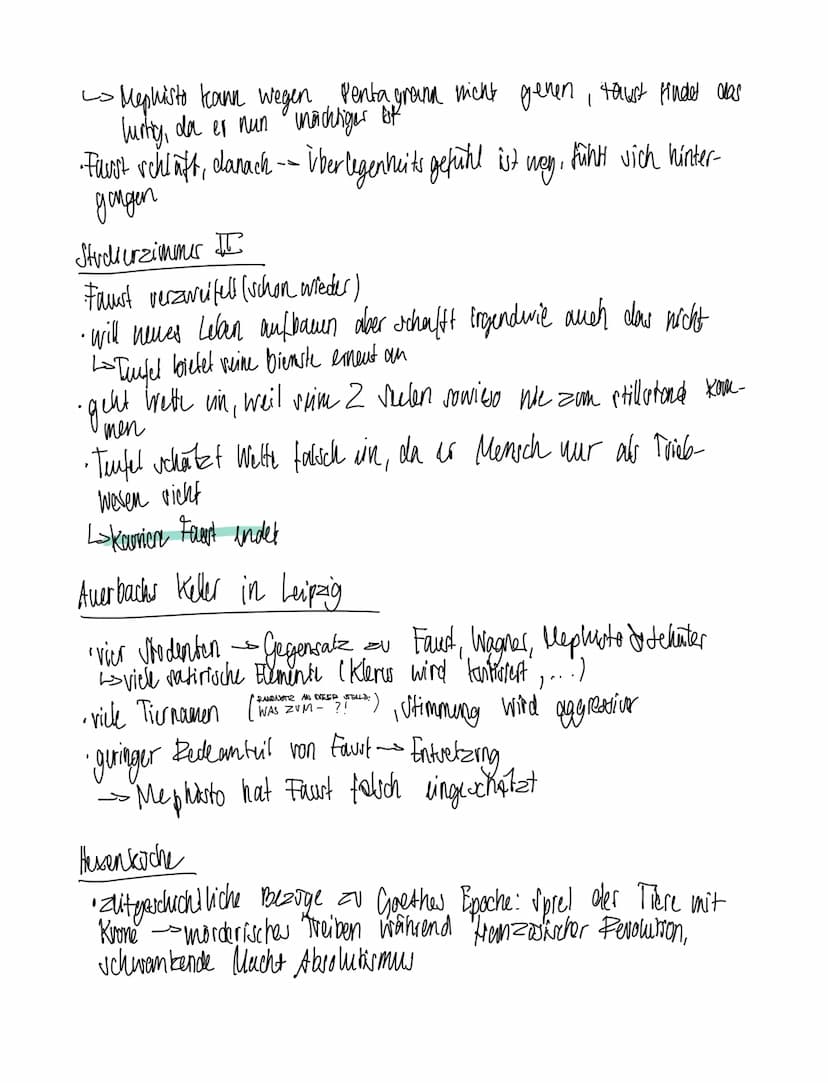 ↳ Mephisto kann wegen Pentagramm nicht gehen, Faust findet das
lustig, da er nun mächtiger ist
· Faust schläft, danach -- Überlegenheitsgefühl ist weg, fühlt sich hinter-
gangen
Studierzimmer II
Faust verzweifelt (schon wieder)
· will neues Leben aufbauen aber schafft irgendwie auch das nicht
↳ Teufel bietet seine Dienste erneut an
· geht Wette ein, weil seine 2 Seelen sowieso nie zum stillstand kom-
men
· Teufel schätzt Wette falsch ein, da er Mensch nur als Trieb-
wesen sieht
↳ Faust endet
Auerbachs Keller in Leipzig
· vier Studenten → Gegensatz zu Faust, Wagner, Mephisto & Schüler
↳ viele satirische Elemente (Klerus wird , ...)
· viele Tiernamen ( AN DIESER STELLE: WAS ZUM - ?! ), Stimmung wird aggressiver
· geringer Redeanteil von Faust → Entsetzung
→ Mephisto hat Faust falsch eingeschätzt
Hexenküche
· zeitgeschichtliche Bezüge zu Goethes Epoche: Spiel der Tiere mit
Krone → mörderisches Treiben während französischer Revolution,
schwankende Macht Absolutismus